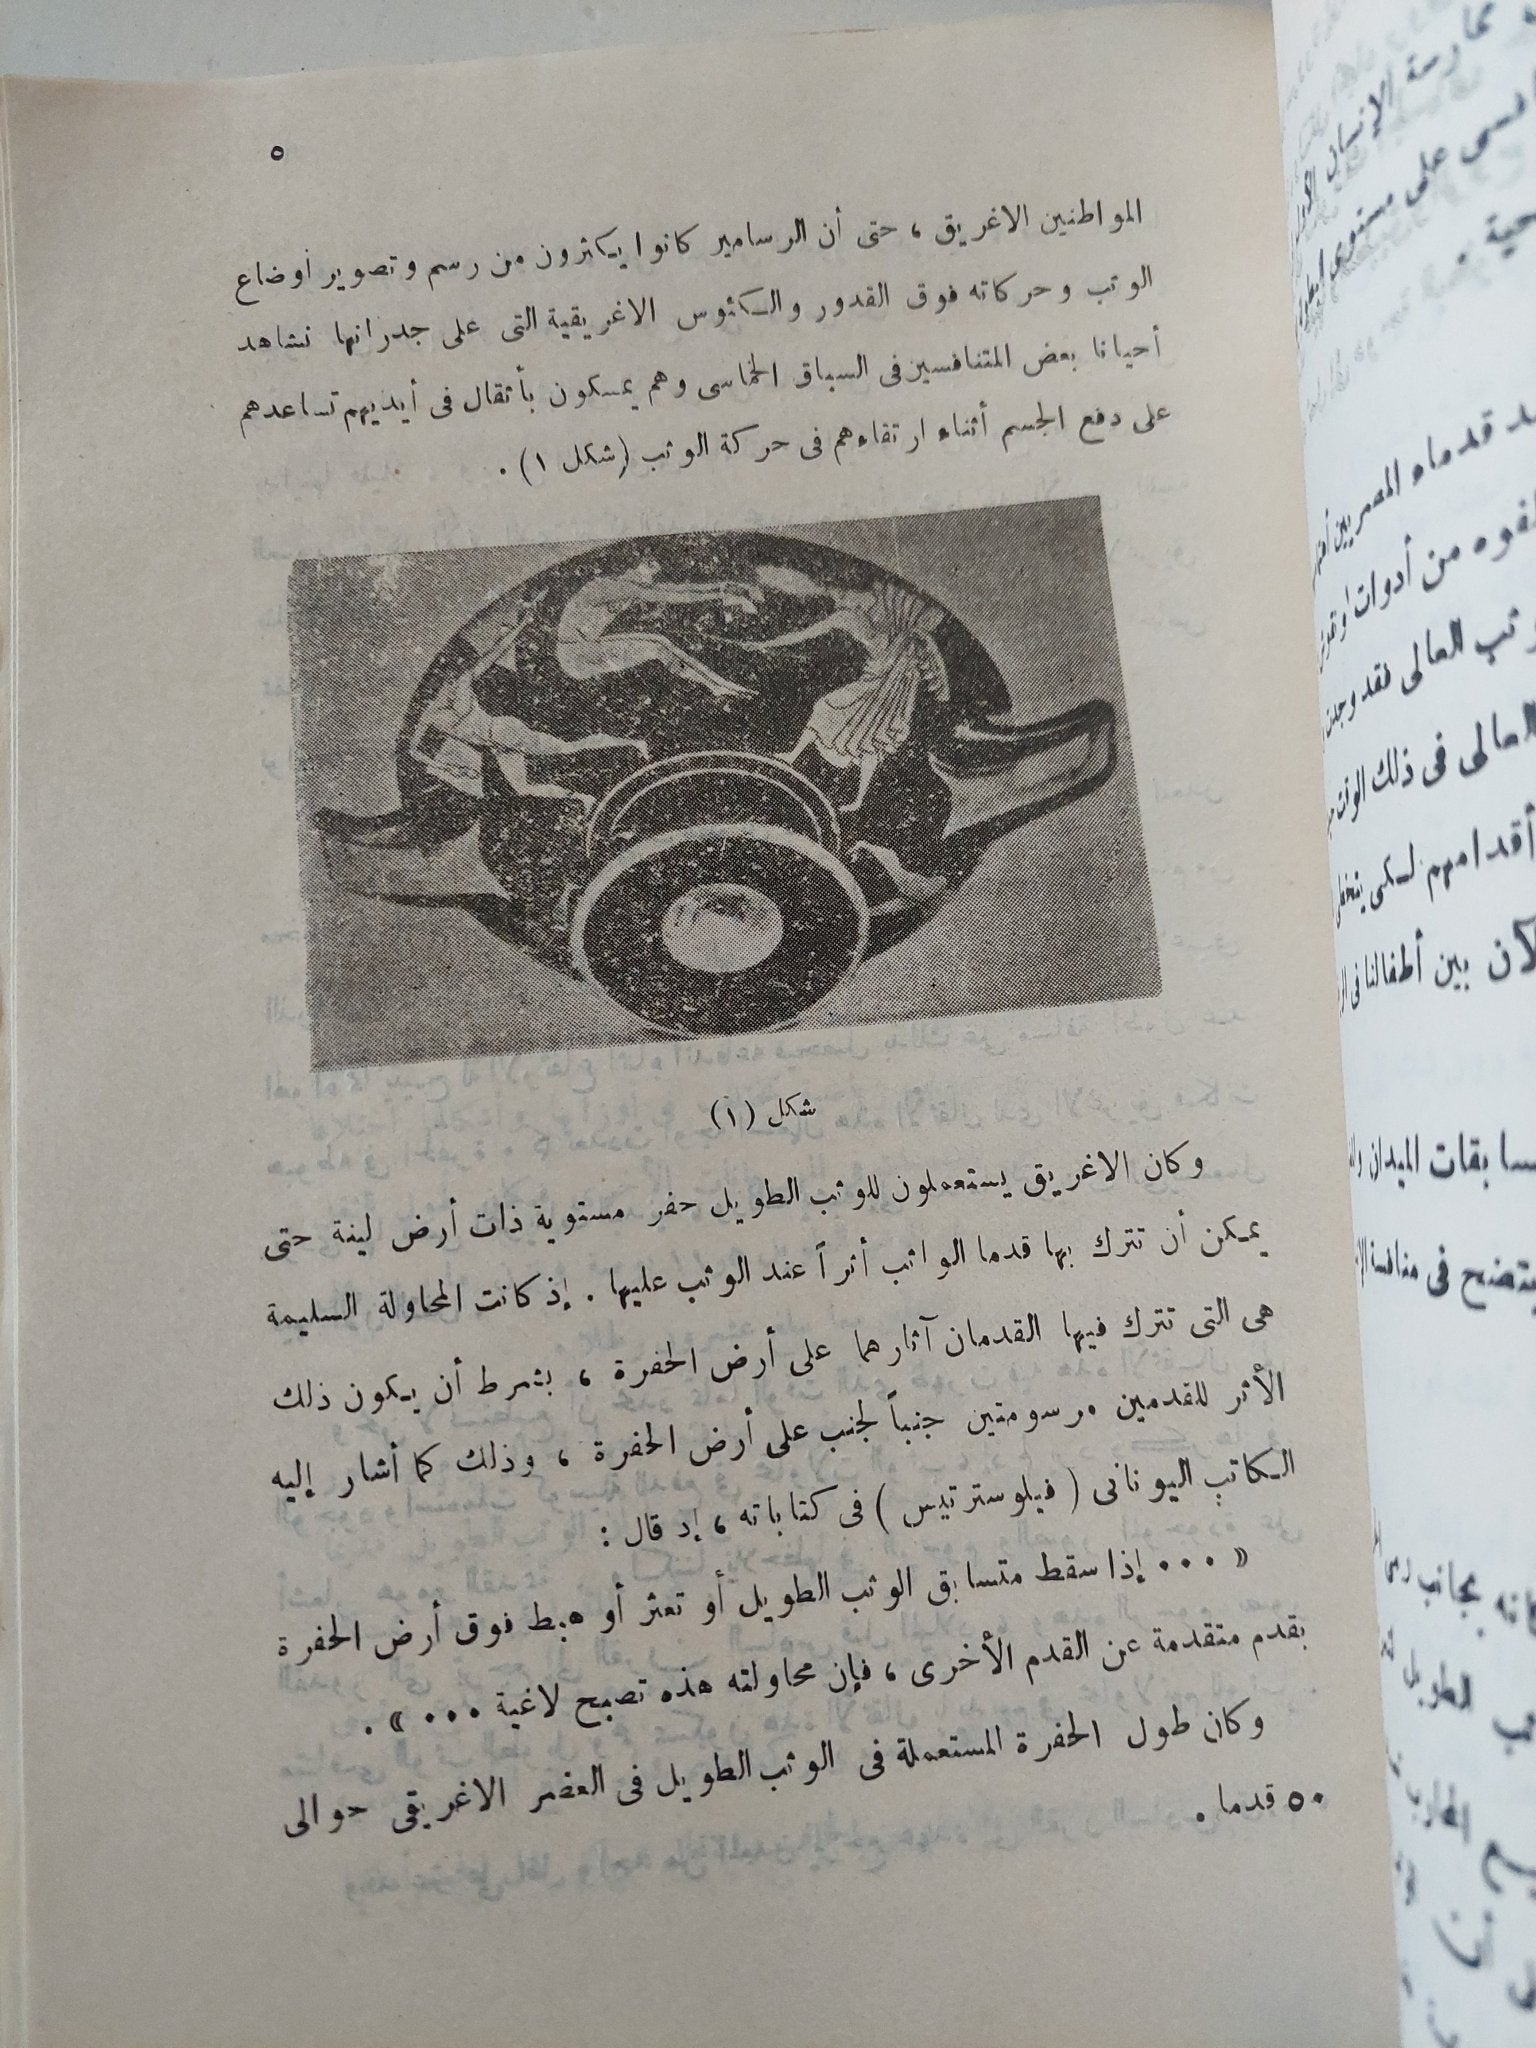 ٥
المواطنين الاغريق ، حتى أن الرسامير كانوا يكثرون من رسم وتصوير أوضاع
الوثب وحركاته فوق القدور والكئوس الاغريقية التى على جدرانها نشاهد
أحيانا بعض المتنافسين فى السباق الخماسى وهم يمسكون بأثقال فى أيديهم تساعدهم
على دفع الجسم أثناء ارتقاءهم فى حركة الوثب (شكل ١) .
شكل (١)
وكان الاغريق يستعملون للوثب الطويل حفر مستوية ذات أرض لينة حتى
يمكن أن تترك بها قدما الواثب أثراً عند الوثب عليها . إذ كانت المحاولة السليمة
هى التى تترك فيها القدمان آثارهما على أرض الحفرة ، بشرط أن يكون ذلك
الأثر للقدمين مرسومتين جنباً لجنب على أرض الحفرة ، وذلك كما أشار إليه
الكاتب اليونانى ( فيلوسترتيس ) فى كتاباته ، إد قال :
« ٠٠٠ إذا سقط متسابق الوثب الطويل أو تعثر أو هبط فوق أرض الحفرة
بقدم متقدمة عن القدم الأخرى ، فإن محاولته هذه تصبح لاغية ٠٠٠ » .
وكان طول الحفرة المستعملة فى الوثب الطويل فى العصر الاغريقى حوالى
٥٠ قدما .
قدماء المصريين
من أدوات
العالى فقد
العالى فى ذلك الوقت
أقدامهم لكى
بين أطفالنا فى
الميدان
يتضح فى منافسة